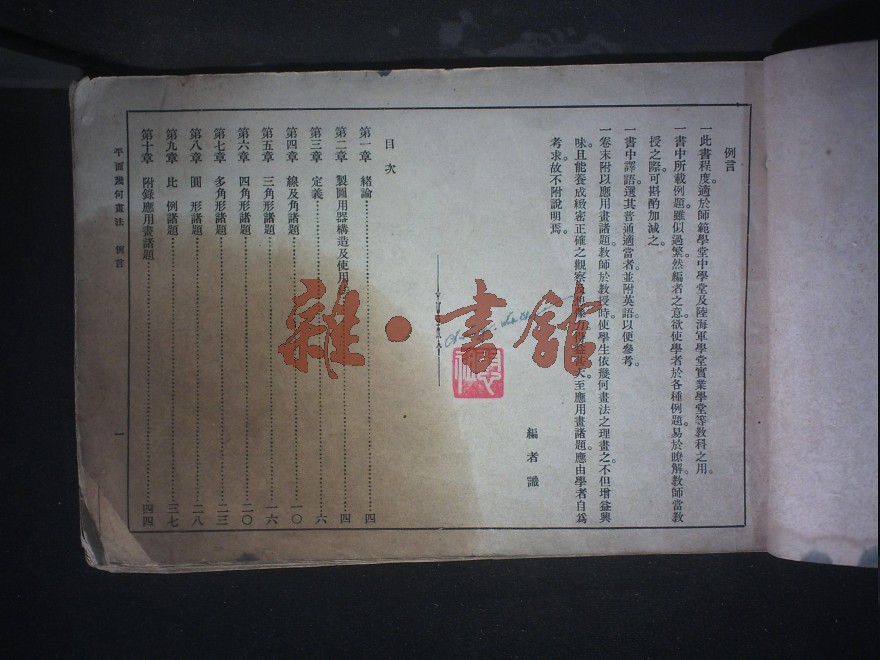 例言
一此書程度。適於師範學堂中學堂及陸海軍學堂實業學堂等教科之用。
一書中所載例題。雖似過繁。然編者之意。欲使學者於各種例題。易於瞭解。教師當教
授之際。可斟酌加減之。
一書中譯語。選其普通適當者。並附英語。以便參考。
一卷末附以應用畫諸題。教師於教授時。使學生依幾何畫法之理畫之。不但增益興
味。且能養成緻密正確之觀察及想像力。得益甚大。至應用畫諸題。應由學者自爲
考求。故不附說明焉。
編者識
目次
第一章 緒論 四
第二章 製圖用器構造及使用 四
第三章 定義 六
第四章 線及角諸題 一〇
第五章 三角形諸題 一六
第六章 四角形諸題 二〇
第七章 多角形諸題 二三
第八章 圓形諸題 二八
第九章 比例諸題 三七
第十章 附錄應用畫諸題 四四
平面幾何畫法 例言 一
雜·書館